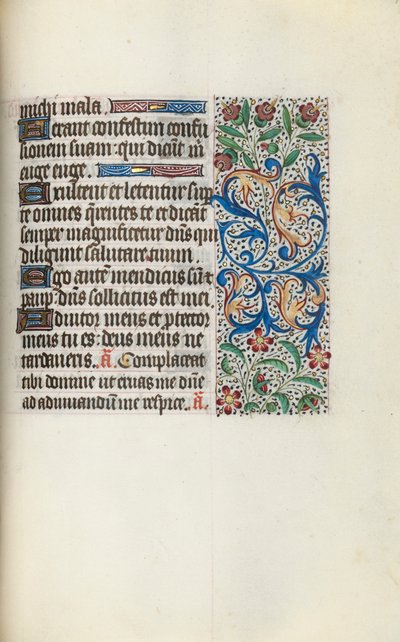 michi mala.
Ferant confestum confu
sionem suam: qui dicūt m̄
euge euge.
Exultent et letentur sup̄
te omnes q̄rentes te et dicāt
semper magnificetur dn̄s qui
diligunt salutare tuum.
Ego autē mendicus sū et
paup̄: dn̄s sollicitus est mei
Adiutor meus et ꝓtector
meus tu es: deus meus ne
tardaueris. A͞ Complaceat
tibi domine ut eruas me dn̄e
ad adiuuandū me respice. A͞